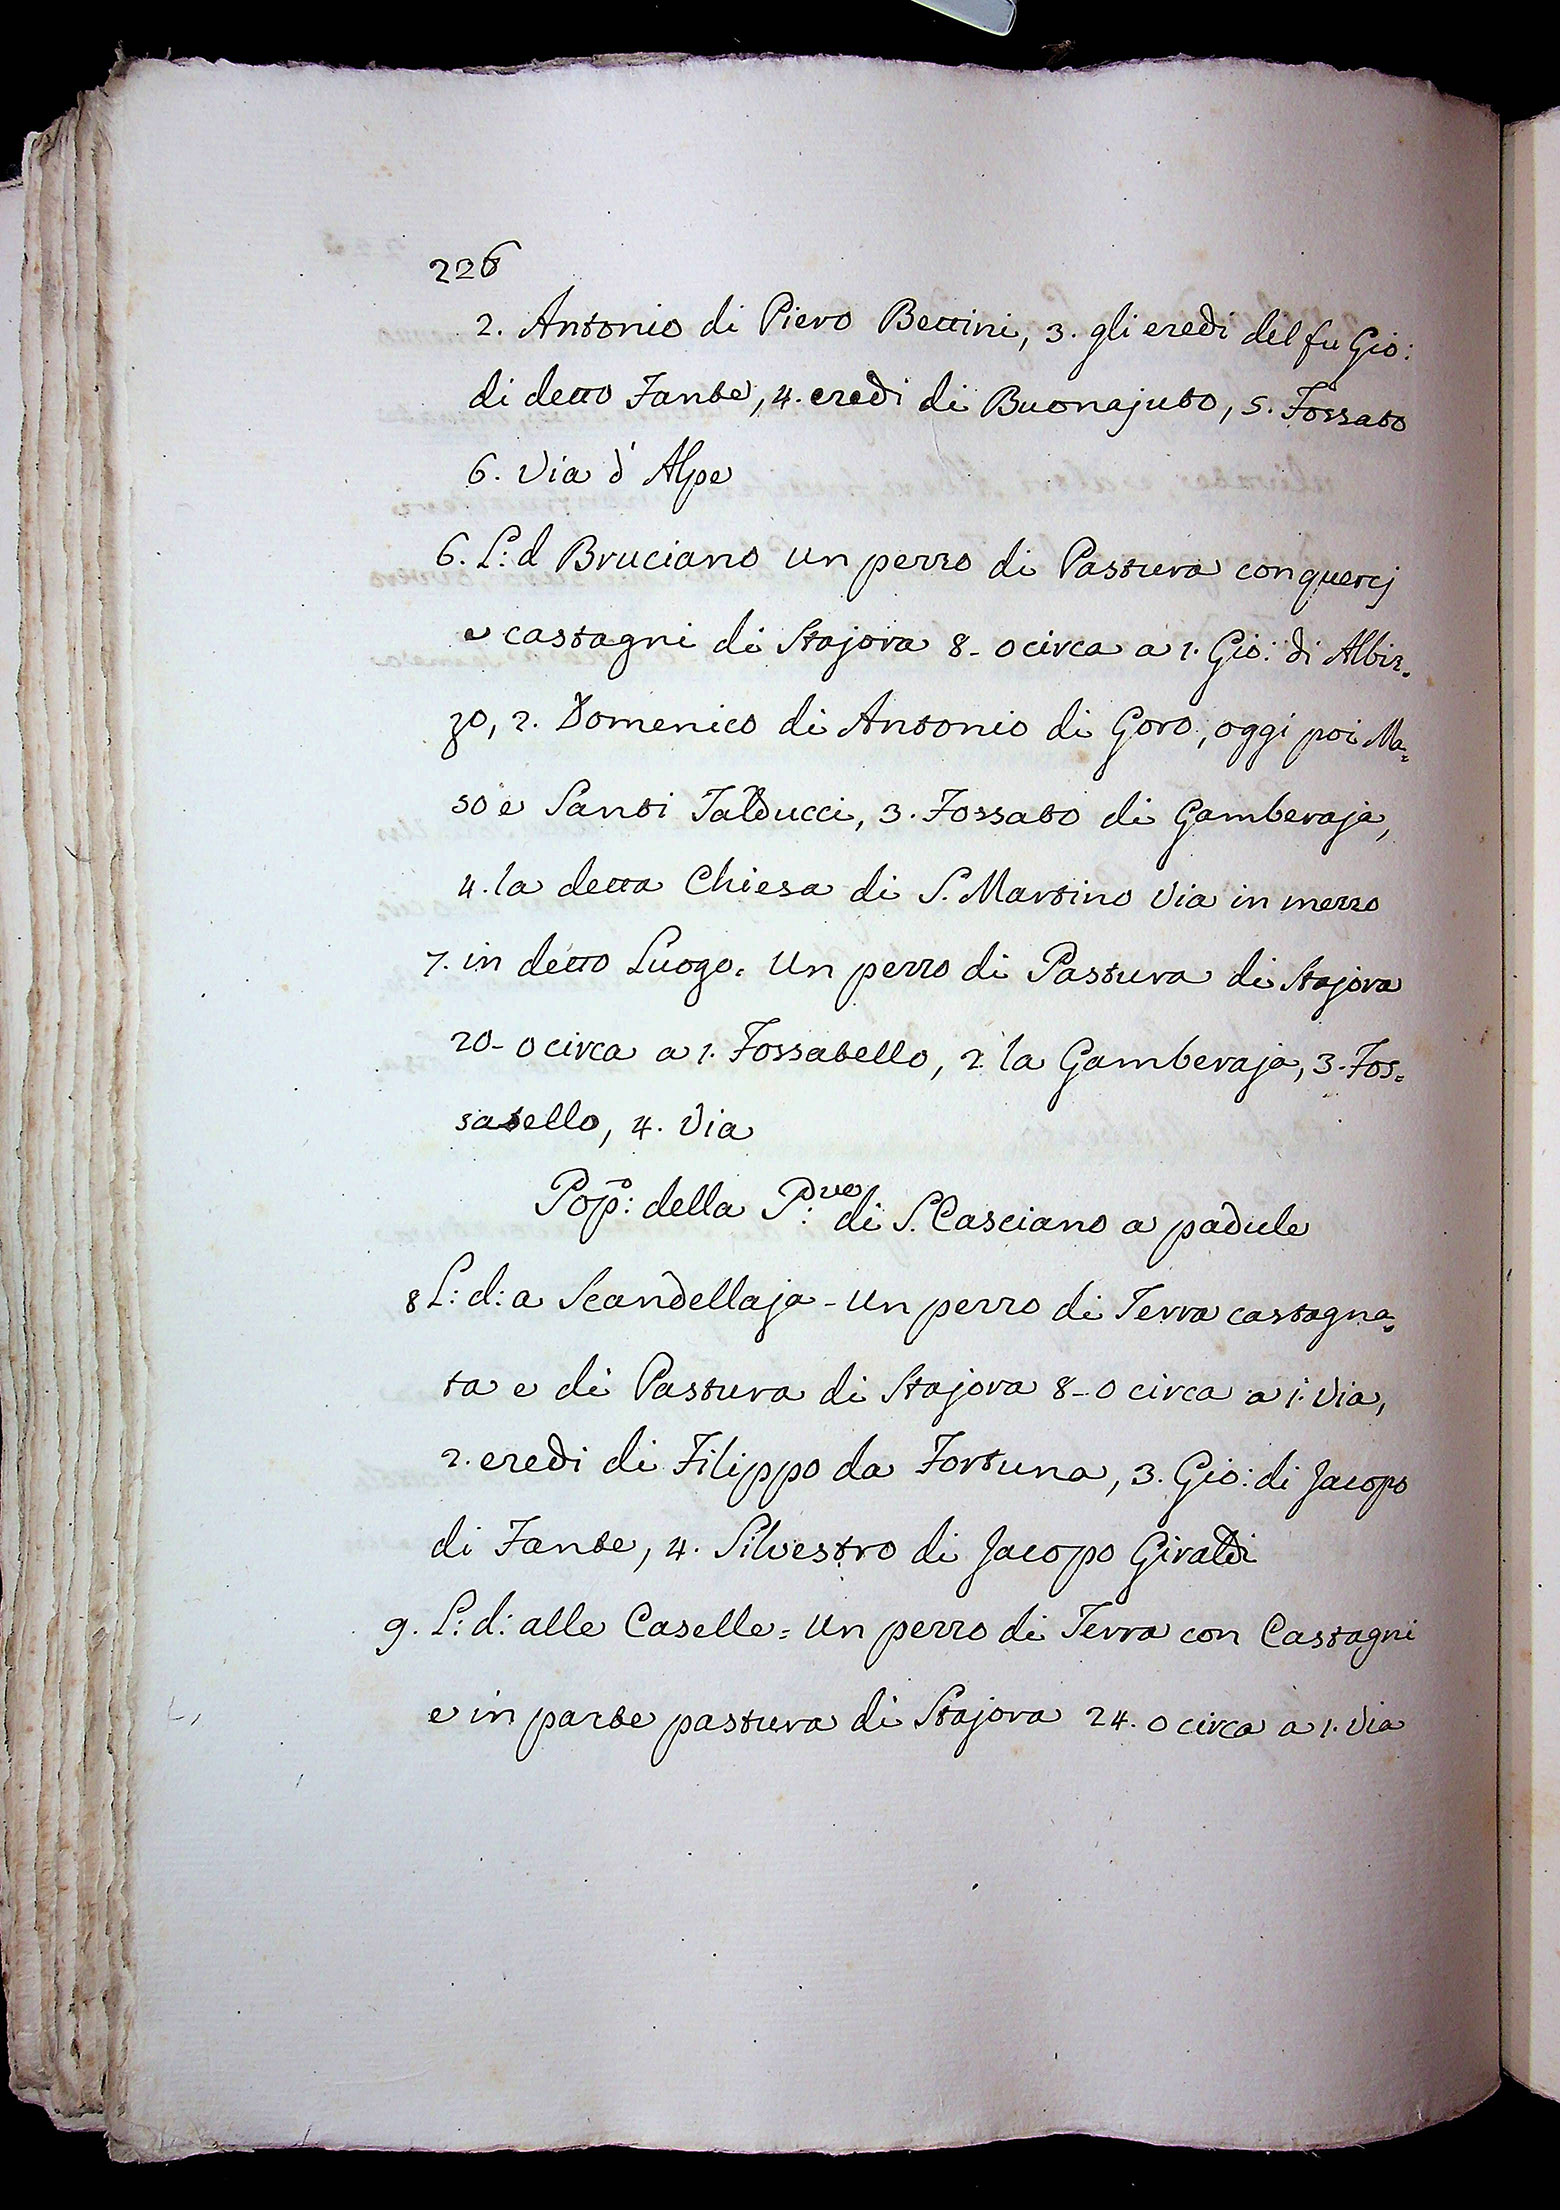 226
2. Antonio di Piero Bettini, 3. gli eredi del fu Gio:
di detto Fante, 4. eredi di Buonajuto, 5. Fossato
6. Via d'Alpe
6. L: d Bruciano un pezzo di Pastura con quercj
e castagni di Stajora 8-0 circa a 1. Gio: di Albiz=
zo, 2. Domenico di Antonio di Goro, oggi poi Ma=
so e Santi Talducci, 3. Fossato di Gamberaja,
4. la detta Chiesa di S. Martino Via in mezzo
7. in detto Luogo = Un pezzo di Pastura di Stajora
20-0 circa a 1. Fossatello, 2. la Gamberaja, 3. Fos=
satello, 4. Via
Pop̃: della P:ve di S. Casciano a padule
8 L: d: a Scandellaja - Un pezzo di Terra castagna=
ta e di Pastura di Stajora 8-0 circa a 1. Via,
2. eredi di Filippo da Fortuna, 3. Gio: di Jacopo
di Fante, 4. Silvestro di Jacopo Giraldi
9. L: d: alle Caselle = Un pezzo di Terra con Castagni
e in parte pastura di Stajora 24.0 circa a 1. Via